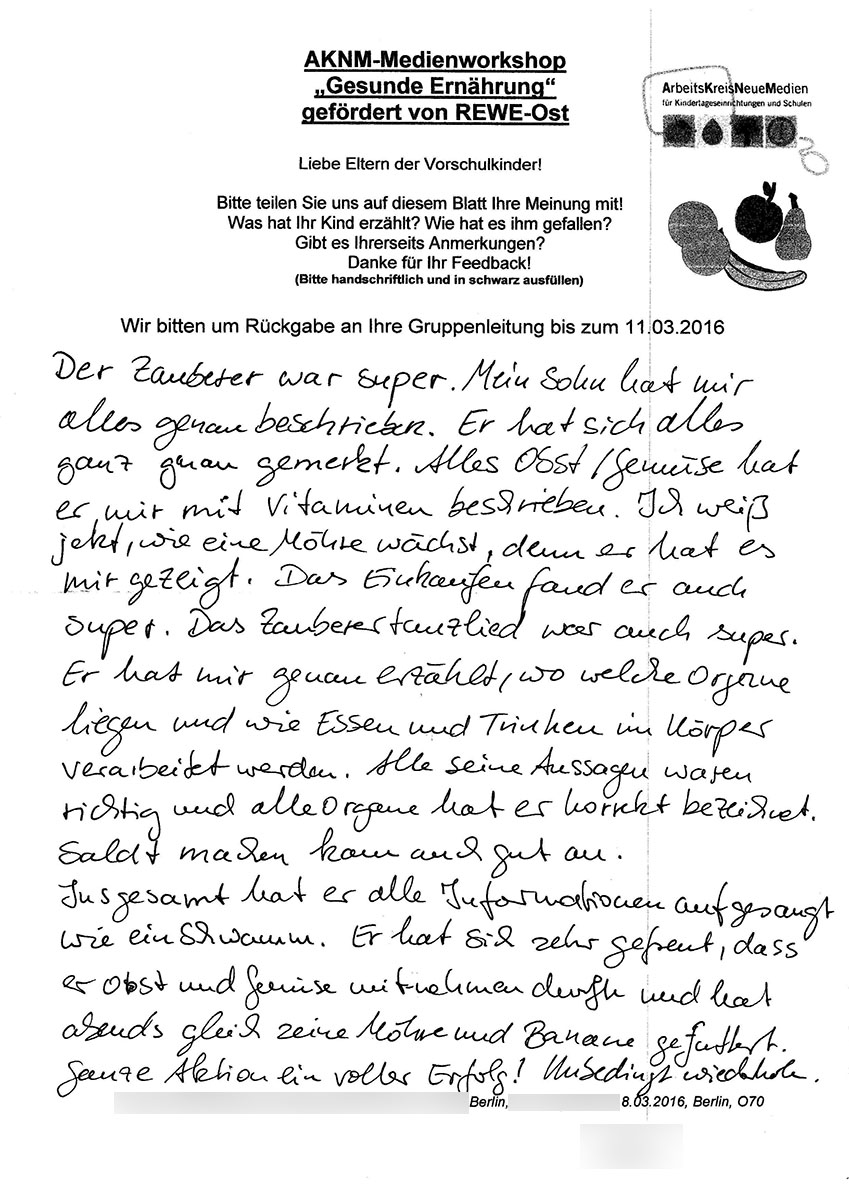 AKNM-Medienworkshop
„Gesunde Ernährung“
gefördert von REWE-Ost
ArbeitsKreisNeueMedien
für Kindertageseinrichtungen und Schulen
Liebe Eltern der Vorschulkinder!
Bitte teilen Sie uns auf diesem Blatt Ihre Meinung mit!
Was hat Ihr Kind erzählt? Wie hat es ihm gefallen?
Gibt es Ihrerseits Anmerkungen?
Danke für Ihr Feedback!
(Bitte handschriftlich und in schwarz ausfüllen)
Wir bitten um Rückgabe an Ihre Gruppenleitung bis zum 11.03.2016
Der Zauberer war super. Mein Sohn hat mir
alles genau beschrieben. Er hat sich alles
ganz genau gemerkt. Alles Obst/Gemüse hat
er mir mit Vitaminen beschrieben. Ich weiß
jetzt, wie eine Möhre wächst, denn er hat es
mir gezeigt. Das Einkaufen fand er auch
super. Das Zauberertanzlied war auch super.
Er hat mir genau erzählt, wo welche Organe
liegen und wie Essen und Trinken im Körper
verarbeitet werden. Alle seine Aussagen waren
richtig und alle Organe hat er korrekt bezeichnet.
Salat machen kam auch gut an.
Insgesamt hat er alle Informationen aufgesaugt
wie ein Schwamm. Er hat sich sehr gefreut, dass
er Obst und Gemüse mitnehmen durfte und hat
abends gleich seine Möhre und Banane gefuttert.
Ganze Aktion ein voller Erfolg! Unbedingt wiederholen.
Berlin, 8.03.2016, Berlin, O70